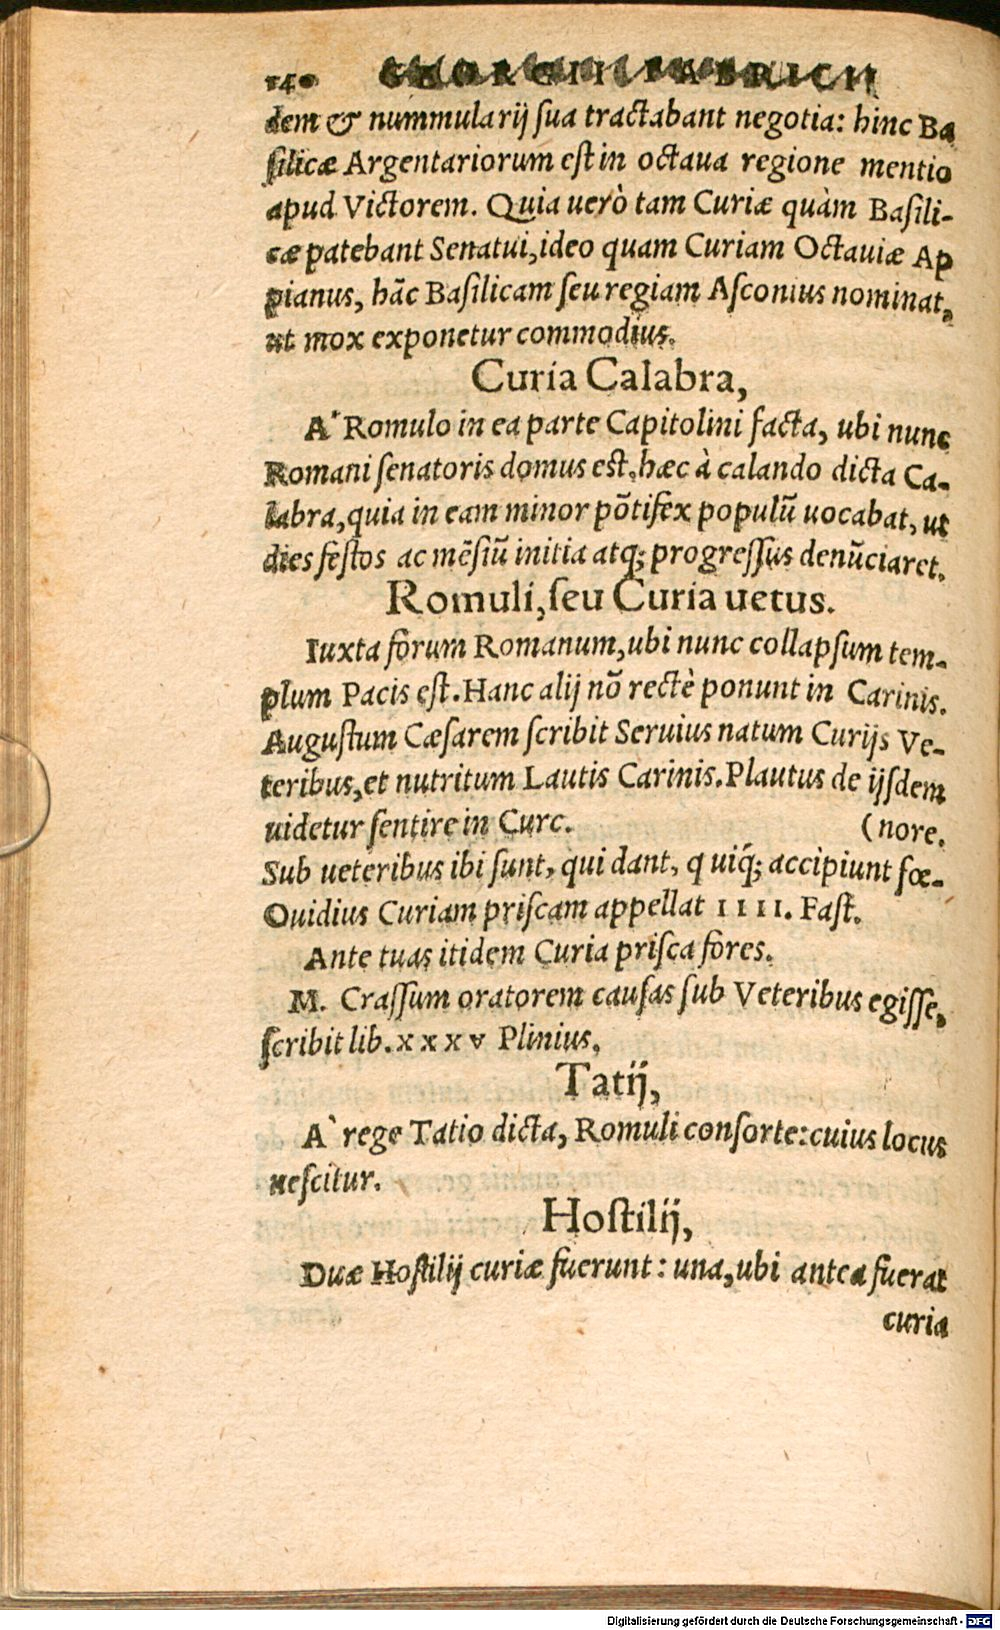 140 GEORGII FABRICII
dem & nummularij ſua tractabant negotia: hinc Ba
ſilicæ Argentariorum eſt in octaua regione mentio
apud Victorem. Quia uerò tam Curiæ quàm Baſili-
cæ patebant Senatui, ideo quam Curiam Octauiæ Ap
pianus, hãc Baſilicam ſeu regiam Aſconius nominat,
ut mox exponetur commodius.
Curia Calabra,
A' Romulo in ea parte Capitolini facta, ubi nunc
Romani ſenatoris domus eſt, hæc à calando dicta Ca-
labra, quia in eam minor põtifex populũ uocabat, ut
dies feſtos ac mẽſiũ initia atq; progreſſus denũciaret.
Romuli, ſeu Curia uetus.
Iuxta forum Romanum, ubi nunc collapſum tem-
plum Pacis eſt. Hanc alij nõ rectè ponunt in Carinis.
Auguſtum Cæſarem ſcribit Seruius natum Curijs Ve-
teribus, et nutritum Lautis Carinis. Plautus de ijſdem
uidetur ſentire in Curc. (nore.
Sub ueteribus ibi ſunt, qui dant, q uiq́; accipiunt fœ-
Ouidius Curiam priſcam appellat IIII. Faſt.
Ante tuas itidem Curia priſca fores.
M. Craſſum oratorem cauſas ſub Veteribus egiſſe,
ſcribit lib. xxxv Plinius.
Tatij,
A` rege Tatio dicta, Romuli conſorte: cuius locus
neſcitur.
Hoſtilij,
Duæ Hoſtilij curiæ fuerunt: una, ubi antea fuerat
curia
Digitalisierung gefördert durch die Deutsche Forschungsgemeinschaft - DFG